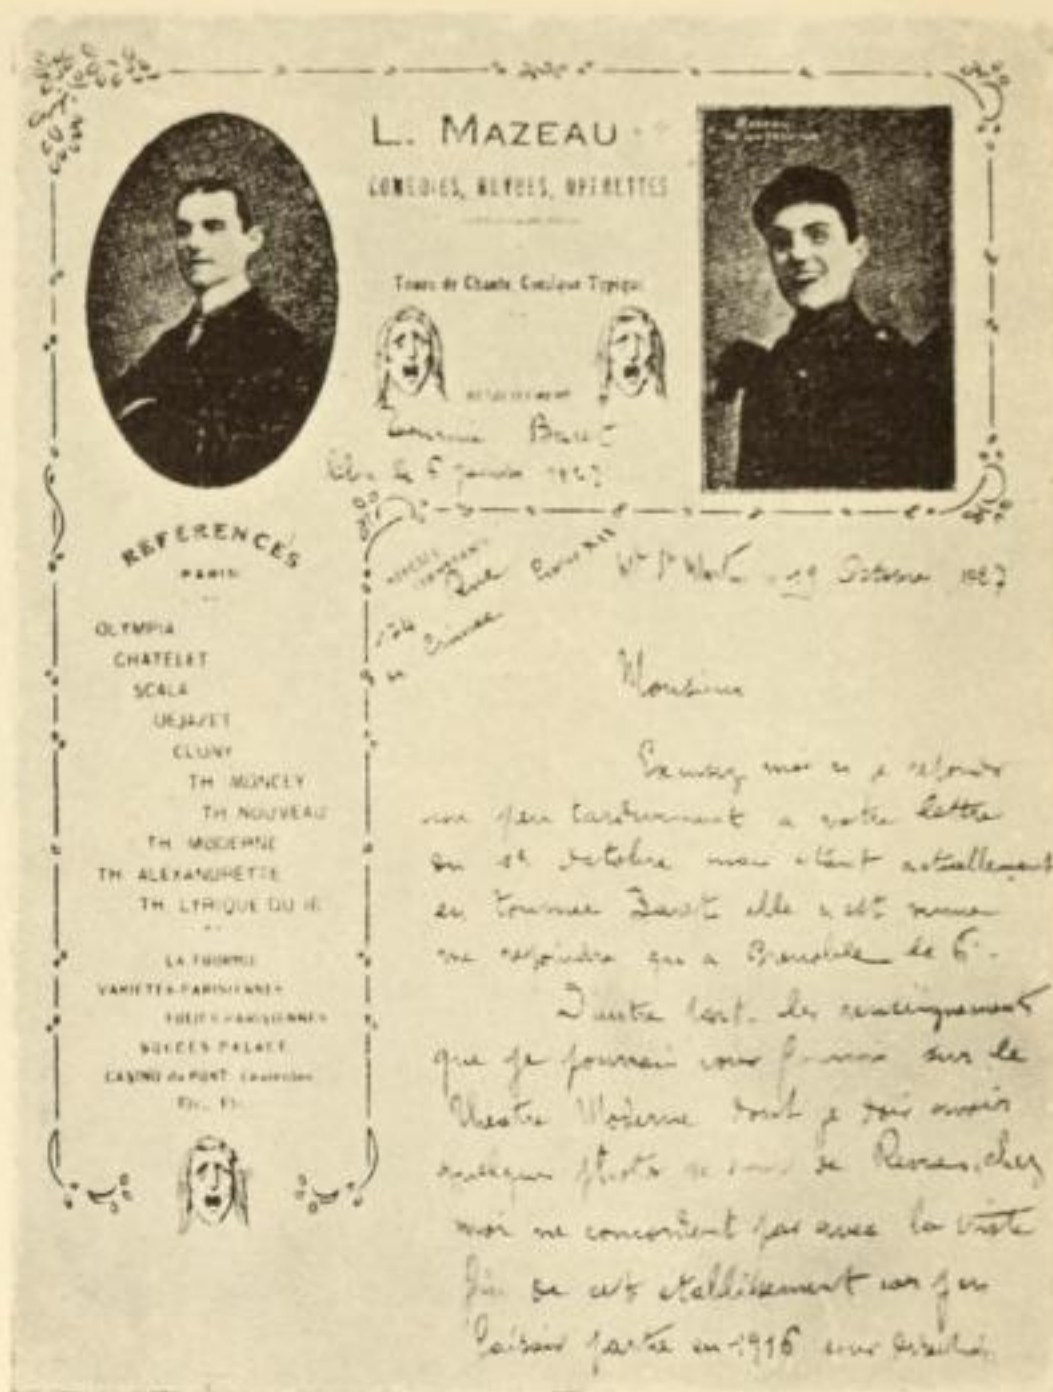 L. MAZEAU
COMÉDIES, REVUES, OPÉRETTES
Tours de Chants, Comique Typique
Tournée Baret
libre le 6 1927
RÉFÉRENCES
PARIS
OLYMPIA
CHATELET
SCALA
DEJAZET
CLUNY
TH MONCEY
TH NOUVEAU
TH MODERNE
TH. ALEXANDRETTE
TH. LYRIQUE DU
LA FOURMI
VARIETES-PARISIENNES
FOLIES-PARISIENNES
PALACE
CASINO du PONT
Etc, Etc
Rue
Crimée
Octobre 1927
Monsieur
Excusez moi si je réponds
un peu tardivement a votre lettre
du 1er octobre mais étant actuellement
en tournée Baret elle n'est venue
me rejoindre qu'a Grenoble le 6.
D'autre part les renseignements
que je pourrais vous fournir sur le
Theatre Moderne dont je dois avoir
quelques photos de Revues chez
moi ne concordent pas avec la triste
fin de cet etablissement car j'en
faisais partie en 1916 sous direction